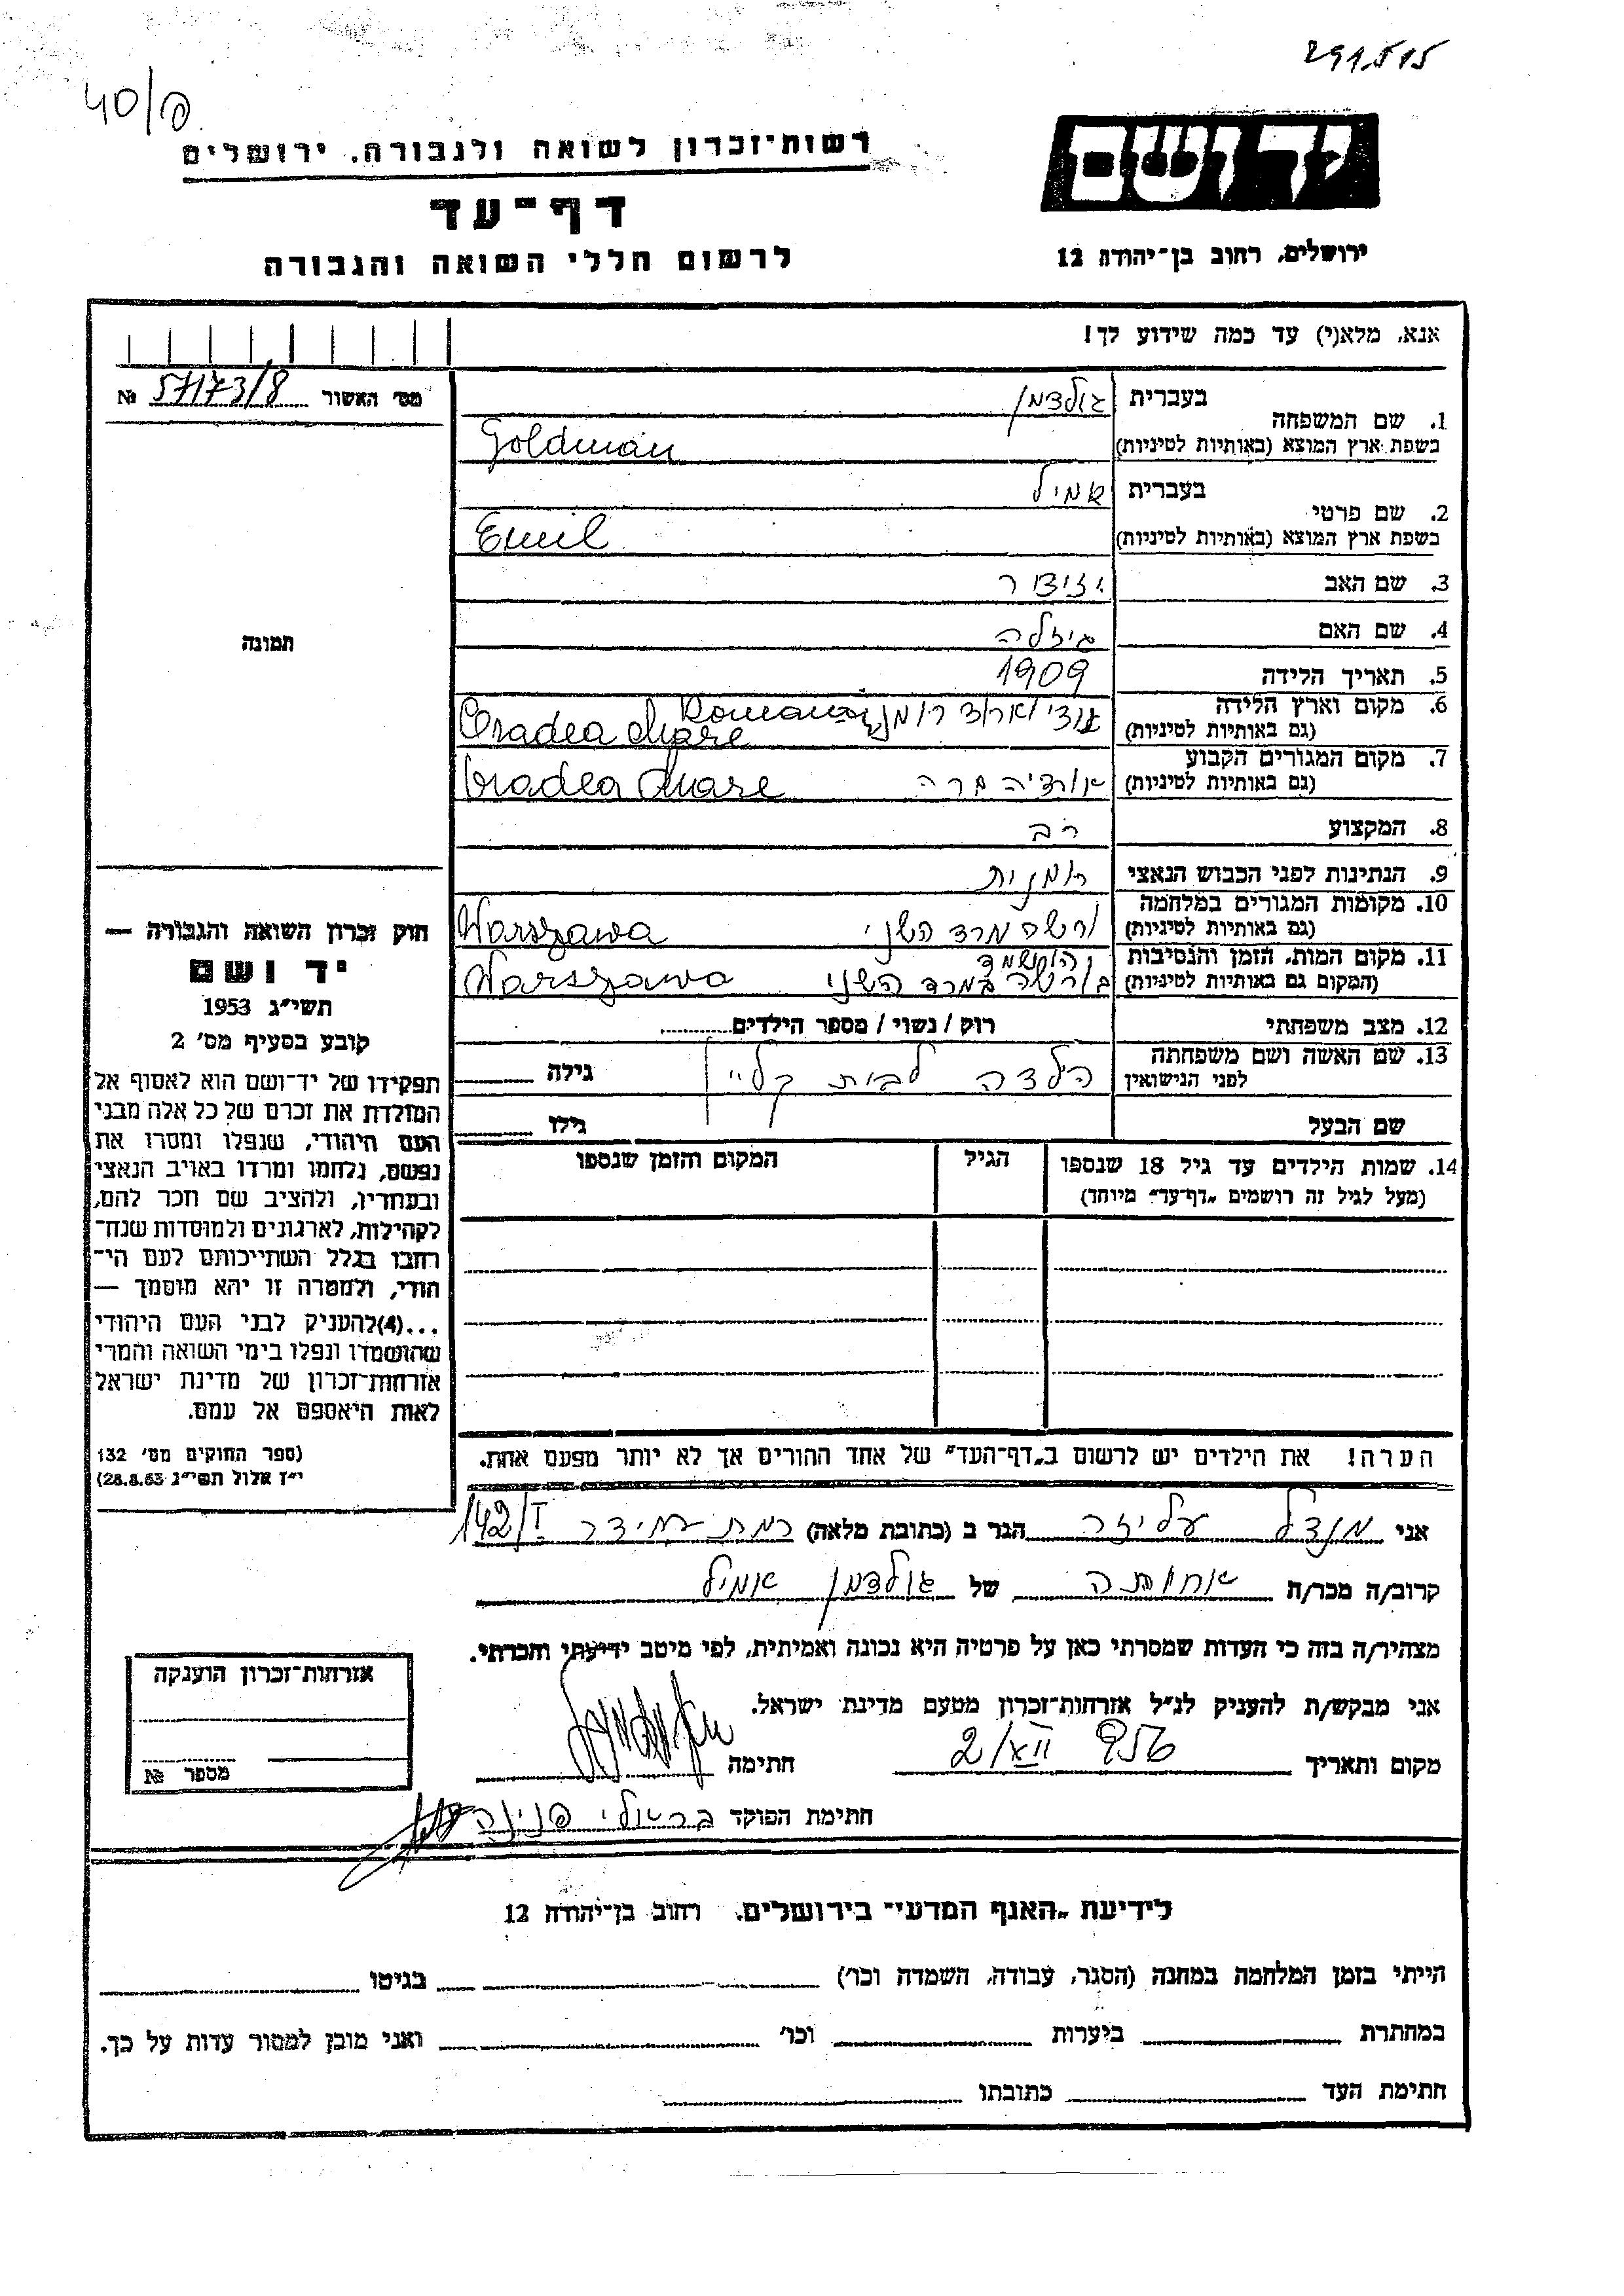 291515
40/פ
יד ושם
רשות־זכרון לשואה ולגבורה, ירושלים
דף־עד
לרשום חללי השואה והגבורה
ירושלים, רחוב בן־יהודה 12
אנא, מלא(י) עד כמה שידוע לך!
מס' האשור 57173/8 №
1. שם המשפחה
בעברית גולדמן
בשפת ארץ המוצא (באותיות לטיניות) Goldman
2. שם פרטי
בעברית אמיל
בשפת ארץ המוצא (באותיות לטיניות) Emil
3. שם האב
4. שם האם גיזלה
תמונה
5. תאריך הלידה 1909
6. מקום וארץ הלידה
(גם באותיות לטיניות) Oradea Mare
7. מקום המגורים הקבוע
(גם באותיות לטיניות) אורדיה מרה Oradea Mare
8. המקצוע רב
9. הנתינות לפני הכבוש הנאצי רומנית
10. מקומות המגורים במלחמה
(גם באותיות לטיניות) ורשה מרד השני Warszawa
11. מקום המות, הזמן והנסיבות הושמד
(המקום גם באותיות לטיניות) בורשה במרד השני Warszawa
12. מצב משפחתי רוק / נשוי / מספר הילדים
13. שם האשה ושם משפחתה
לפני הנישואין הילדה לבית קליין גילה
שם הבעל גילו
14. שמות הילדים עד גיל 18 שנספו הגיל המקום והזמן שנספו
(מעל לגיל זה רושמים "דף־עד" מיוחד)
חוק זכרון השואה והגבורה —
יד ושם
תשי"ג 1953
קובע בסעיף מס' 2
תפקידו של יד־ושם הוא לאסוף אל
המולדת את זכרם של כל אלה מבני
העם היהודי, שנפלו ומסרו את
נפשם, נלחמו ומרדו באויב הנאצי
ובעוזריו, ולהציב שם וזכר להם,
לקהילות, לארגונים ולמוסדות שנח־
רבו בגלל השתייכותם לעם הי־
הודי, ולמטרה זו יהא מוסמך —
...(4) להעניק לבני העם היהודי
שהושמדו ונפלו בימי השואה והמרי
אזרחות־זכרון של מדינת ישראל
לאות היאספם אל עמם.
(ספר החוקים מס' 132
י"ז אלול תשי"ג 28.8.53)
הערה! את הילדים יש לרשום ב"דף־העד" של אחד ההורים אך לא יותר מפעם אחת.
אני מנדל עליזה הגר ב (כתובת מלאה) רמת 142/I
קרוב/ה מכר/ה אחותה של גולדמן אמיל
מצהיר/ה בזה כי העדות שמסרתי כאן על פרטיה היא נכונה ואמיתית, לפי מיטב ידיעתי והכרתי.
אני מבקש/ת להעניק לנ"ל אזרחות־זכרון מטעם מדינת ישראל.
מקום ותאריך חתימה
חתימת הפוקד בראלי פנינה
אזרחות־זכרון הוענקה
מספר №
לידיעת "האגף המדעי" בירושלים, רחוב בן־יהודה 12
הייתי בזמן המלחמה במחנה (הסגר, עבודה, השמדה וכו') בגיטו
במחתרת ביערות וכו' ואני מוכן למסור עדות על כך.
חתימת העד כתובתו